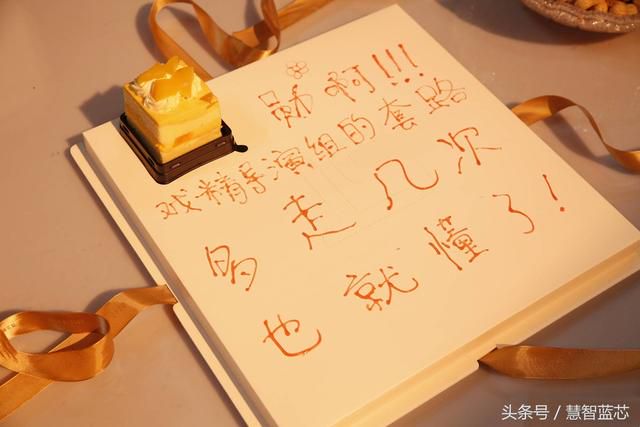 勋啊!!!
戏精导演组的套路
多走几次
也就懂了!
头条号 / 慧智蓝芯